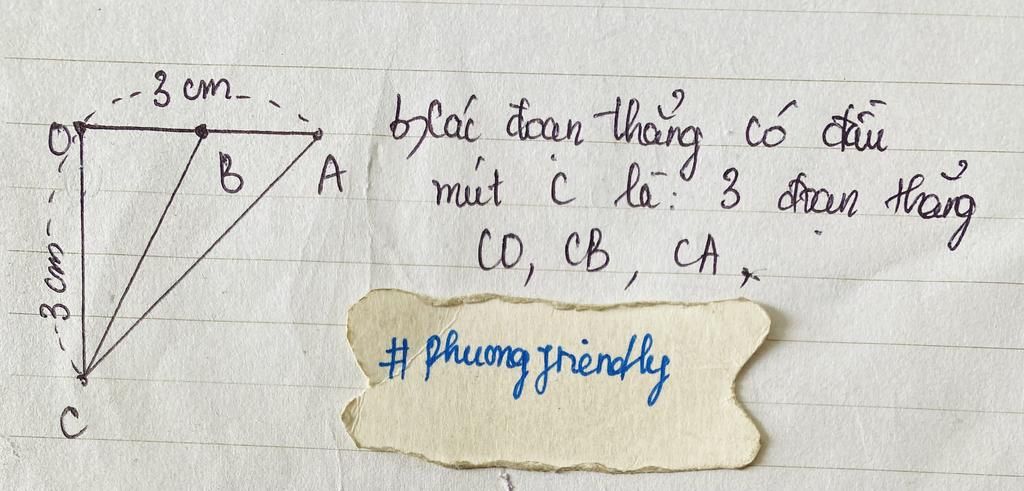 3 cm
O
B
A
3 cm
C
b, Các đoạn thẳng có đầu
mút C là: 3 đoạn thẳng
CO, CB, CA,
#phuongfriendly